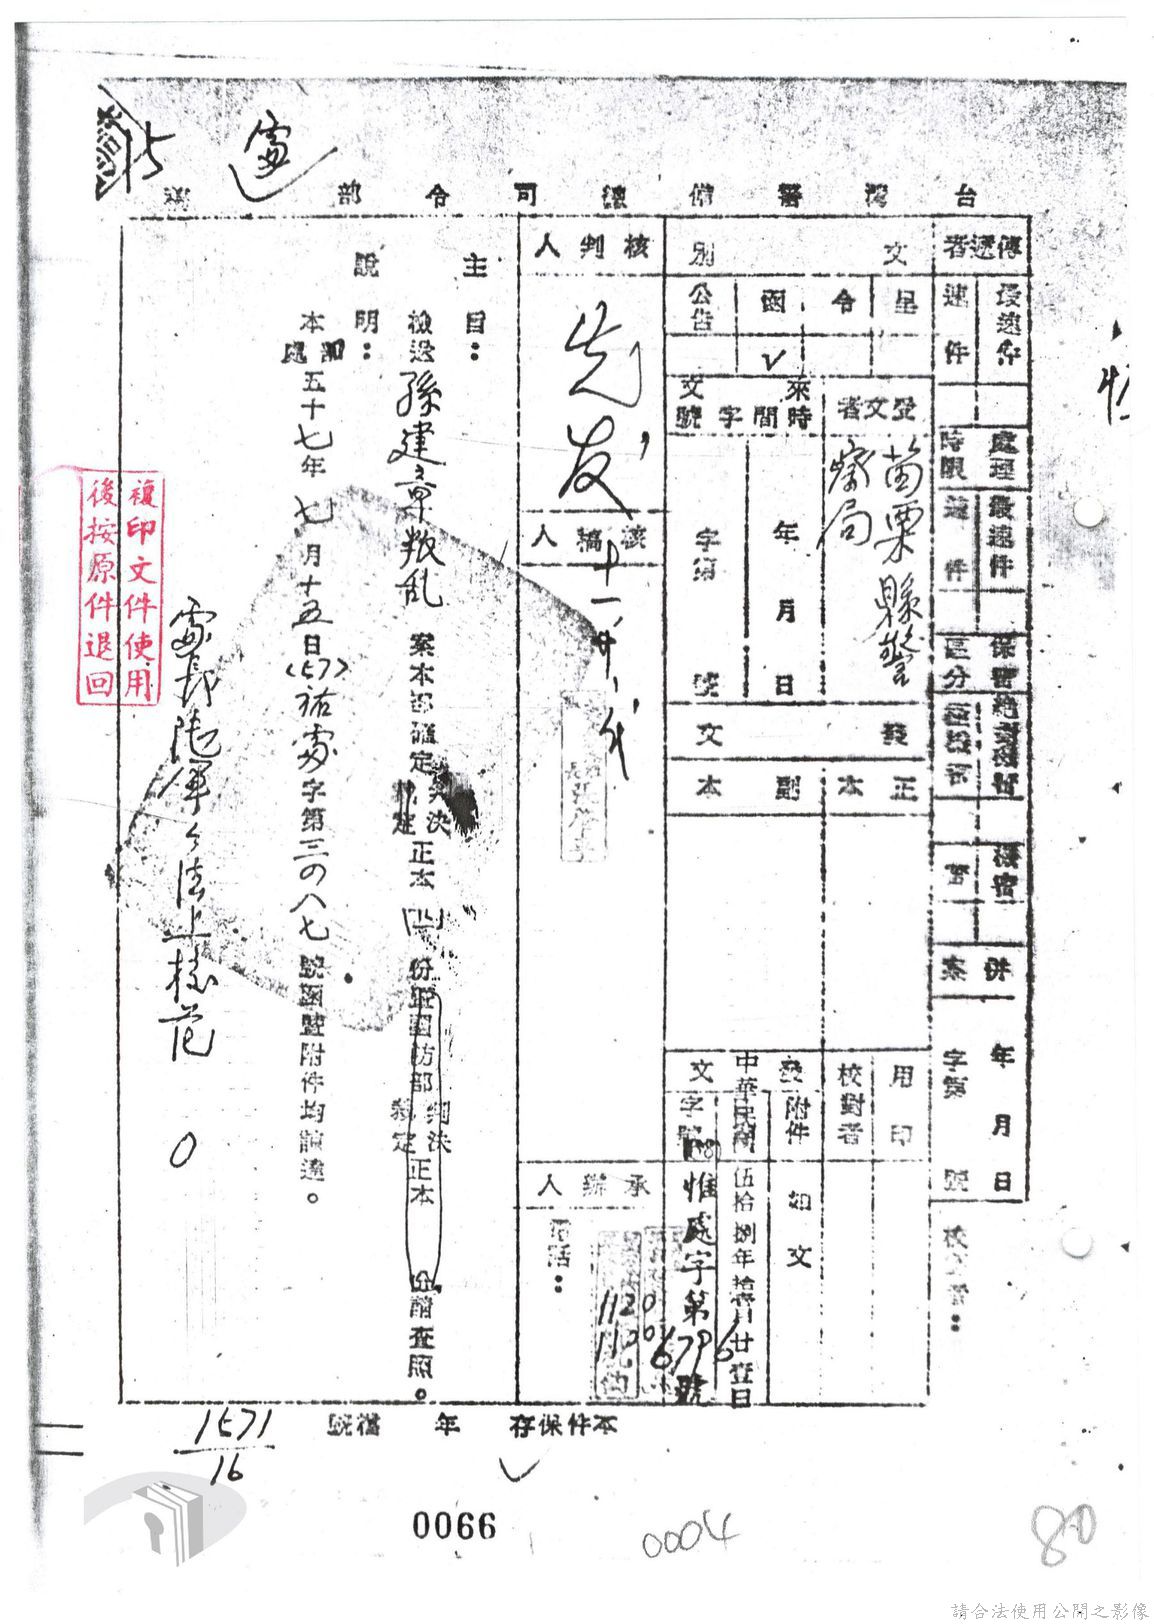 處
15
台灣警備總司令部 稿
傳遞者
最速件
速件
處理時限
最速件
速件
保密區分
絕對機密
極機密
機密
密
併案
年 月 日
字第 號
文別
呈
令
函
公告
✓
受文者
苗栗縣警察局
來文
時間
字號
年 月 日
字第 號
發文
正本
副本
用印
校對者
發文
附件
如文
中華民國伍拾捌年拾壹月廿壹日
字號
(58)惟處字第6796號
核判人
先友
十一、廿、
核稿人
承辦人
電話:
1120
主旨:
檢送孫建章叛乱案本部確定判決裁定正本 份暨國防部判決裁定正本 份請查照。
說明:
本部處五十七年七月十五日(57)祐處字第三0八七號函暨附件均諒達。
處長
複印文件使用
後按原件退回
本件保存 年 檔號
1571
16
0066
0004
80
請合法使用公開之影像